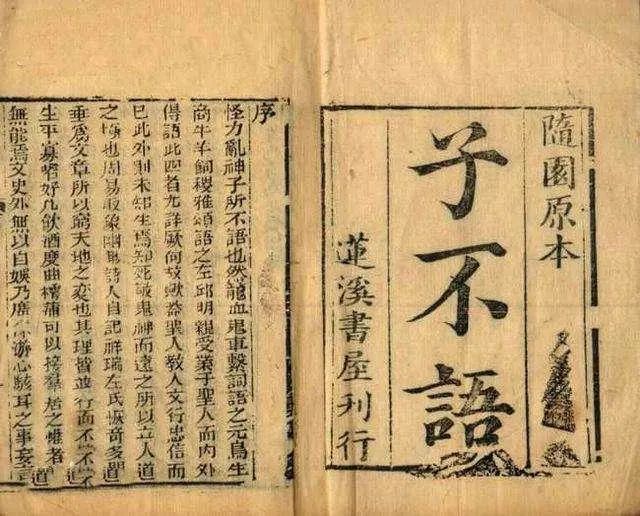 隨園原本
子不語
蓮溪書屋刊行
序
怪力亂神子所不語也然龍血鬼車繫詞語之元鳥生
商牛羊飼稷雅頌語之左邱明親受業于聖人而內外
傳語此四者尤詳厥何故歟蓋聖人教人文行忠信而
已此外則未知生焉知死敬鬼神而遠之所以立人道
之極也周易取象幽眇詩人自記祥瑞左氏恢奇多
垂為文章所以窮天地之變也其理皆並行而不
生平寡嗜好凡飲酒度曲樗蒲可以接羣居之者
無能焉文史外無以自娛乃游心駭耳之事妄言